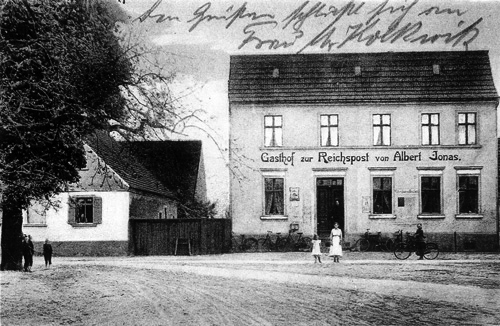 Den Grüßen schließt sich an
Frau Kolkwitz
Gasthof zur Reichspost von Albert Jonas.